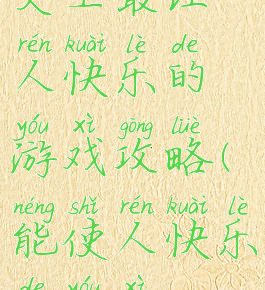 史上最让
rén kuài lè de
人快乐的
yóu xì gōng lüè
游戏攻略(
néng shǐ rén kuài lè
能使人快乐
de yóu xì